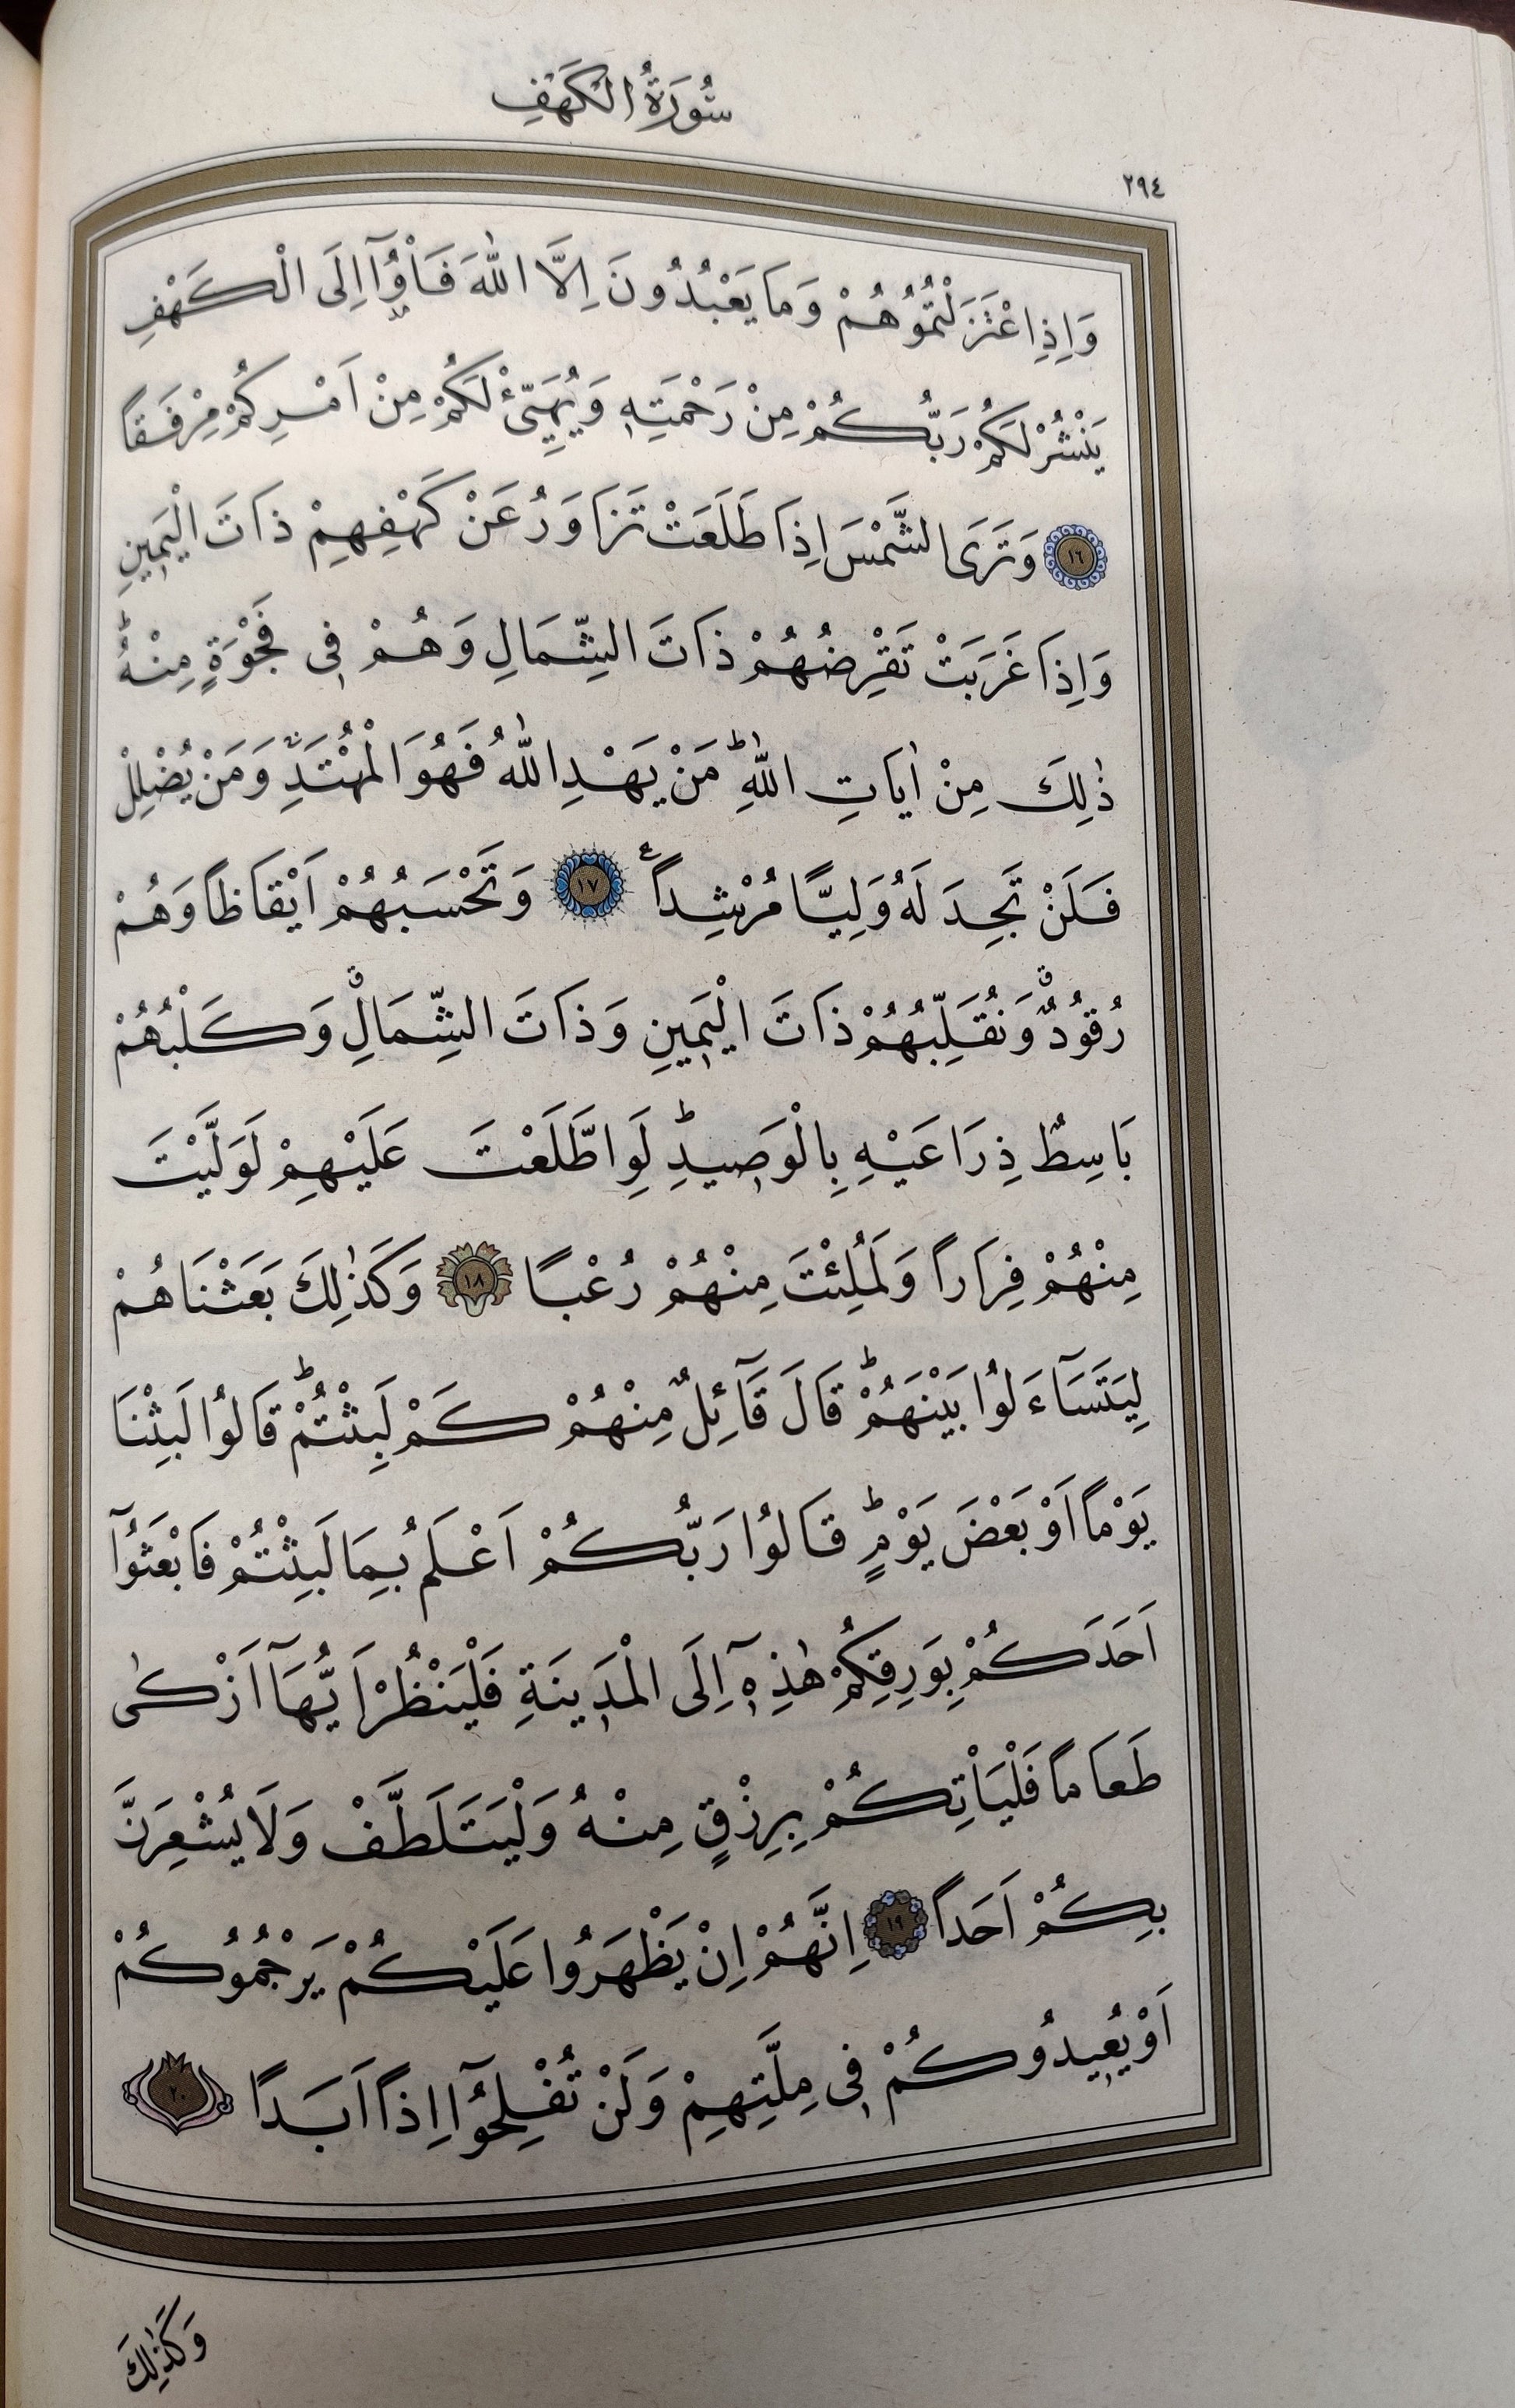 سُورَةُ الْكَهْفِ
٢٩٤
وَاِذِ اعْتَزَلْتُمُوهُمْ وَمَا يَعْبُدُونَ اِلَّا اللّٰهَ فَأْوُٓا اِلَى الْكَهْفِ
يَنْشُرْ لَكُمْ رَبُّكُمْ مِنْ رَحْمَتِه۪ وَيُهَيِّئْ لَكُمْ مِنْ اَمْرِكُمْ مِرْفَقًا
﴿١٦﴾ وَتَرَى الشَّمْسَ اِذَا طَلَعَتْ تَزَاوَرُ عَنْ كَهْفِهِمْ ذَاتَ الْيَم۪ينِ
وَاِذَا غَرَبَتْ تَقْرِضُهُمْ ذَاتَ الشِّمَالِ وَهُمْ ف۪ي فَجْوَةٍ مِنْهُۜ
ذٰلِكَ مِنْ اٰيَاتِ اللّٰهِۜ مَنْ يَهْدِ اللّٰهُ فَهُوَ الْمُهْتَدِۚ وَمَنْ يُضْلِلْ
فَلَنْ تَجِدَ لَهُ وَلِيًّا مُرْشِداًۚ ﴿١٧﴾ وَتَحْسَبُهُمْ اَيْقَاظاً وَهُمْ
رُقُودٌۗ وَنُقَلِّبُهُمْ ذَاتَ الْيَم۪ينِ وَذَاتَ الشِّمَالِۗ وَكَلْبُهُمْ
بَاسِطٌ ذِرَاعَيْهِ بِالْوَص۪يدِۜ لَوِ اطَّلَعْتَ عَلَيْهِمْ لَوَلَّيْتَ
مِنْهُمْ فِرَاراً وَلَمُلِئْتَ مِنْهُمْ رُعْبًا ﴿١٨﴾ وَكَذٰلِكَ بَعَثْنَاهُمْ
لِيَتَسَٓاءَلُوا بَيْنَهُمْۜ قَالَ قَٓائِلٌ مِنْهُمْ كَمْ لَبِثْتُمْۜ قَالُوا لَبِثْنَا
يَوْماً اَوْ بَعْضَ يَوْمٍۜ قَالُوا رَبُّكُمْ اَعْلَمُ بِمَا لَبِثْتُمْ فَابْعَثُٓوا
اَحَدَكُمْ بِوَرِقِكُمْ هٰذِه۪ٓ اِلَى الْمَد۪ينَةِ فَلْيَنْظُرْ اَيُّهَٓا اَزْكٰى
طَعَاماً فَلْيَأْتِكُمْ بِرِزْقٍ مِنْهُ وَلْيَتَلَطَّفْ وَلَا يُشْعِرَنَّ
بِكُمْ اَحَداً ﴿١٩﴾ اِنَّهُمْ اِنْ يَظْهَرُوا عَلَيْكُمْ يَرْجُمُوكُمْ
اَوْ يُع۪يدُوكُمْ ف۪ي مِلَّتِهِمْ وَلَنْ تُفْلِحُٓوا اِذاً اَبَدًا ﴿٢٠﴾
وَكَذٰلِكَ